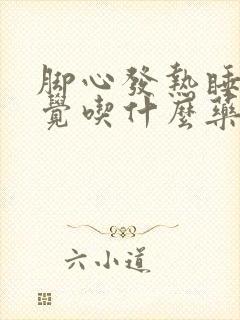 脚心發熱睡
覺喫什麼藥
六小道